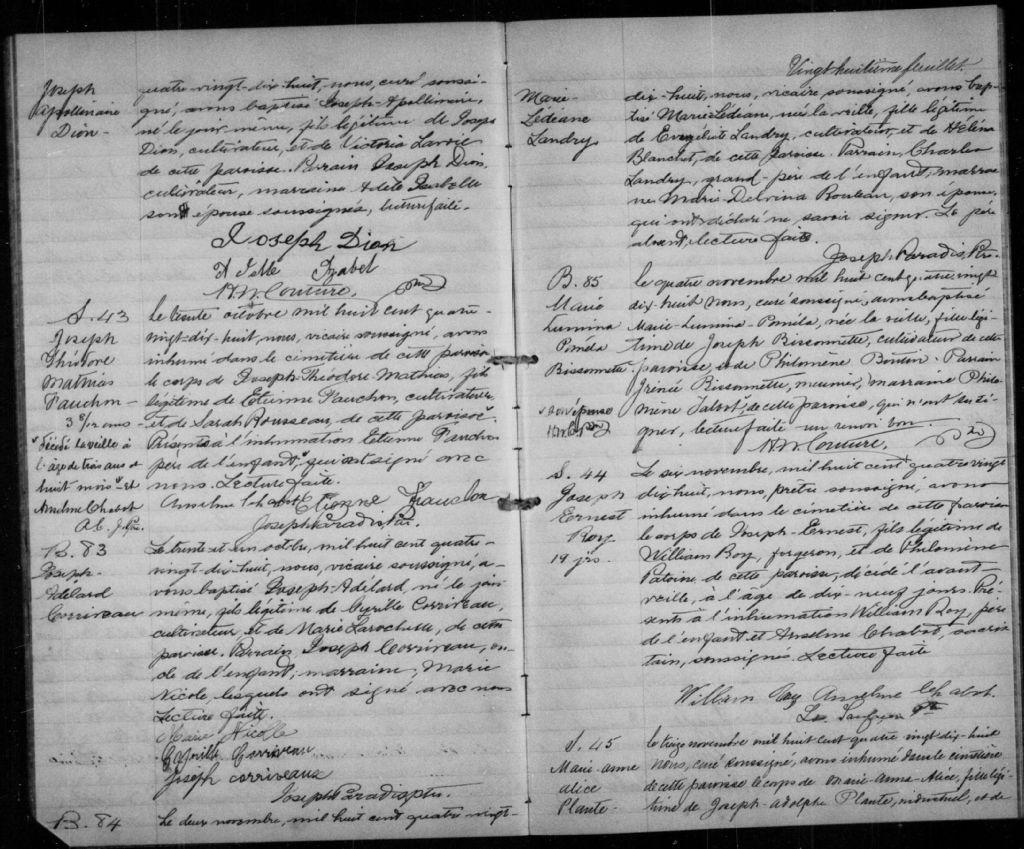 Joseph
Apollinaire
Dion-
quatre vingt-dix-huit, nous, curé, soussi-
gné, avons baptisé Joseph-Apollinaire,
né le jour même, fils légitime de Joseph
Dion, cultivateur, et de Victoria Lavoie
de cette paroisse. Parrain Joseph Dion,
cultivateur, marraine Adèle Isabelle
son épouse soussignés, lecture faite.
Joseph Dion
Adelle Izabel
H.W. Couture,
S. 43
Joseph
Théodore
Mathias
Fauchon-
3 8/12 ans
décédé la veille à
l'âge de trois ans et
huit mois et
Anselme Chabot
Le trente octobre mil huit cent quatre-
vingt-dix-huit, nous, vicaire soussigné, avons
inhumé dans le cimetière de cette paroisse
le corps de Joseph-Théodore-Mathias, fils
légitime de Etienne Fauchon, cultivateur,
et de Sarah Rousseau, de cette paroisse.
Présents à l'inhumation Etienne Fauchon
père de l'enfant, qui ont signé avec
nous. Lecture faite.
Anselme Chabot Etienne Fauchon
Joseph Paradis Ptre.
B. 83
Joseph-
Adélard
Corriveau
Le trente et un octbre, mil huit cent quatre-
vingt-dix-huit, nous, vicaire soussigné, a-
vons baptisé Joseph-Adélard, né le jour
même, fils légitime de Cyrille Corriveau,
cultivateur, et de Marie Larochelle, de cette
paroisse. Parrain, Joseph Corriveau, on-
cle de l'enfant; marraine, Marie
Nicole, lesquels ont signé avec nous
Lecture faite.
Marie Nicolle
Corriveau
Joseph corriveaux
Joseph Paradis ptre.
B. 84
Le deux novembre, mil huit cent quatre vingt-
Vingt huitième feuillet.
Marie-
Lédéane
Landry
dix-huit, nous, vicaire soussigné, avons bap-
tisé Marie Lédéane, née la veille, fille légitime
de Landry, cultivateur, et de Héléna
Blanchet, de cette paroisse. Parrain, Charles
Landry, grand-père de l'enfant, marrai-
ne Marie Delvina Routeau, son épouse,
qui ont déclaré ne savoir signer. Le père
absent, lecture faite.
Joseph Paradis, Ptre.
B. 85
Marie
Lumina
Paméla
Bissonnette
son épouse
Le quatre novembre mil huit cent quatre vingt
dix-huit nous, curé soussigné, avons baptisé
Marie-Lumina-Paméla, née la veille, fille légi-
time de Joseph Bissonnette, cultivateur de cette
paroisse, et de Philomène Boutin. Parrain
Irénée Bissonnette, meunier, marraine Philo-
mène Talbot, de cette paroisse, qui n'ont su si-
gner, lecture faite un renvoi bon.
H.W. Couture,
S. 44
Joseph
Ernest
Roy
19 jrs.
Le six novembre, mil huit cent quatre vingt
dix-huit, nous, prêtre soussigné, avons
inhumé dans le cimetière de cette paroisse
le corps de Joseph-Ernest, fils légitime de
William Roy, forgeron, et de Philomène
Patoine, de cette paroisse, décédé l'avant-
veille, à l'âge de dix-neuf jours. Pré-
sents à l'inhumation William Roy, père
de l'enfant et Anselme Chabot, sacris-
tain, soussignés. Lecture faite
William Roy Anselme Chabot.
S. 45
Marie-anne
alice
Plante-
Le treize novembre mil huit cent quatre vingt-dix-huit
nous, curé soussigné, avons inhumé dans le cimetière
de cette paroisse le corps de Marie-Anna-Alice, fille légi-
time de Joseph-Adolphe Plante, industriel, et de